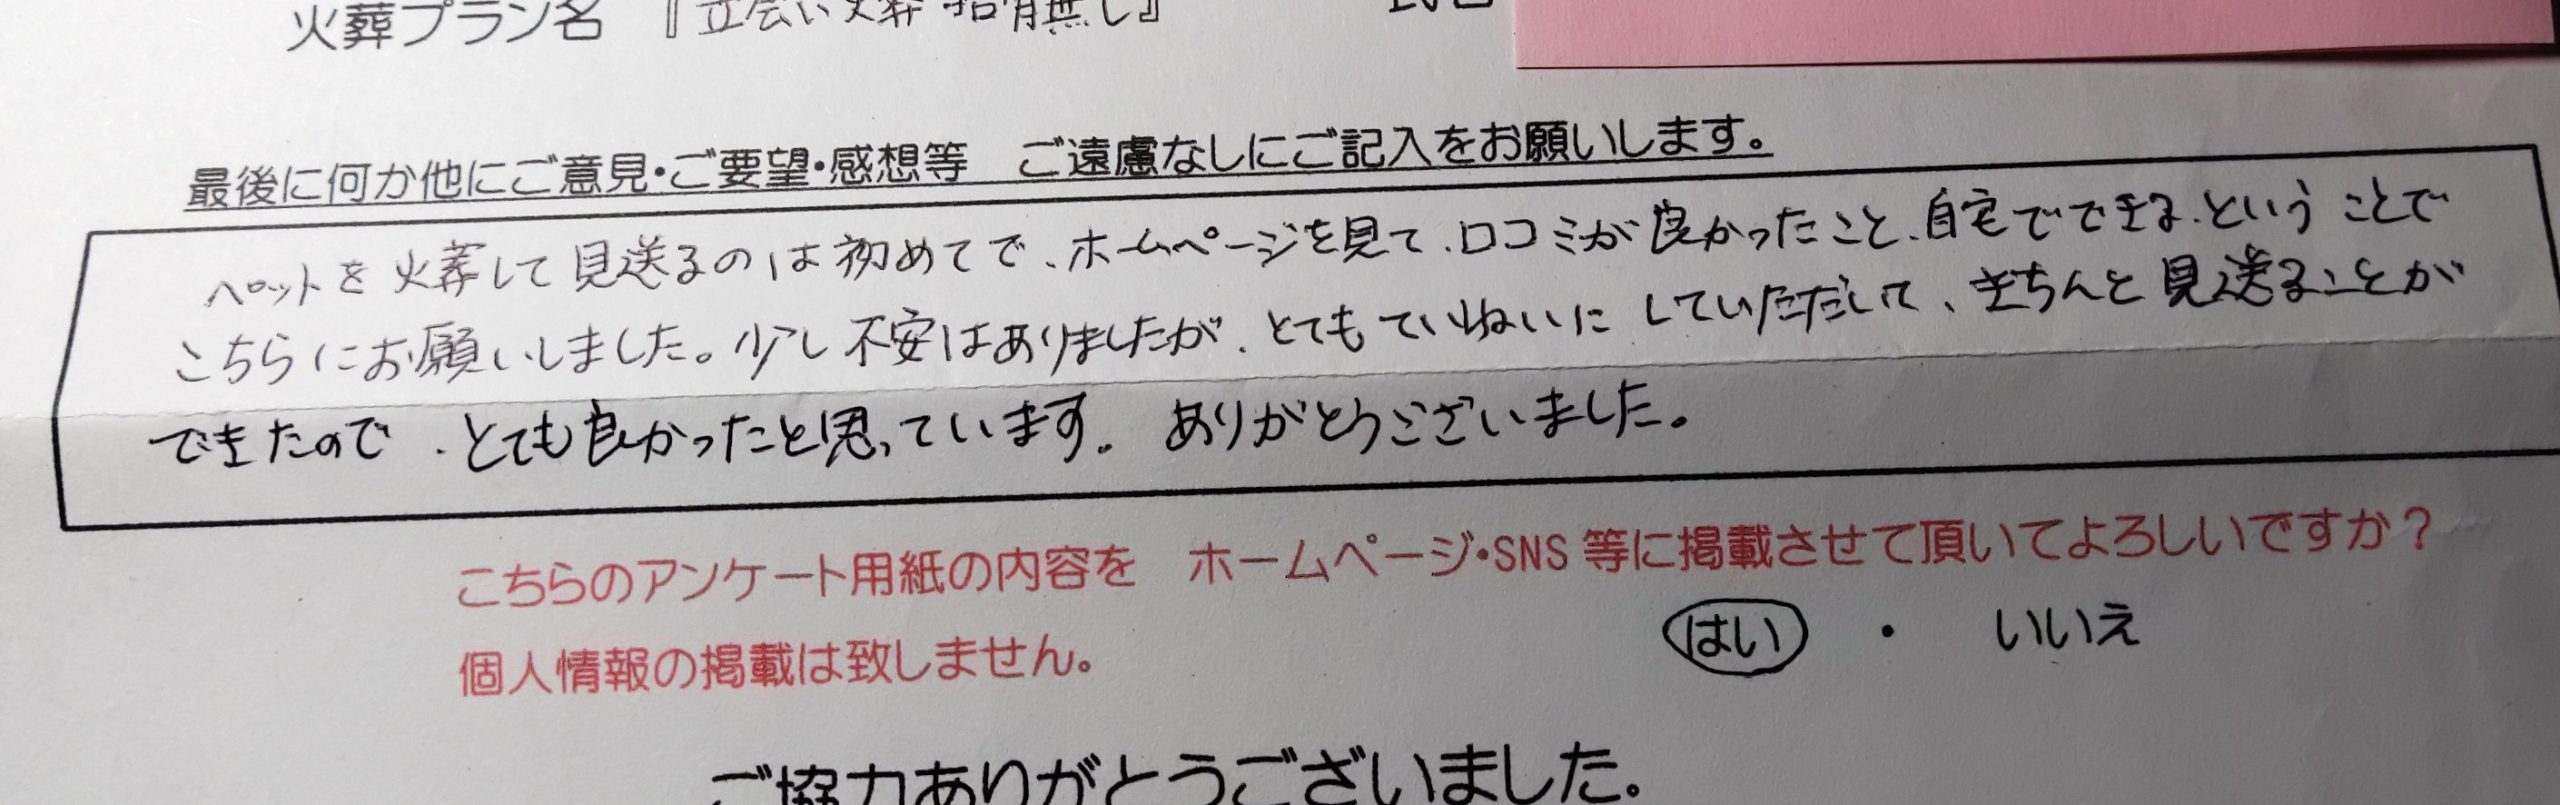 火葬プラン名 『立会い火葬 拾骨無し』
最後に何か他にご意見・ご要望・感想等 ご遠慮なしにご記入をお願いします。
ペットを火葬して見送るのは初めてで、ホームページを見て、口コミが良かったこと、自宅でできる、ということで
こちらにお願いしました。少し不安はありましたが、とてもていねいにしていただだして、きちんと見送ることが
できたので、とても良かったと思っています。ありがとうございました。
こちらのアンケート用紙の内容を ホームページ・SNS 等に掲載させて頂いてよろしいですか？
個人情報の掲載は致しません。
はい ・ いいえ
ご協力ありがとうございました。